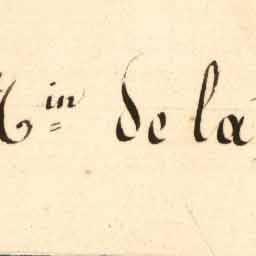 M.in de la